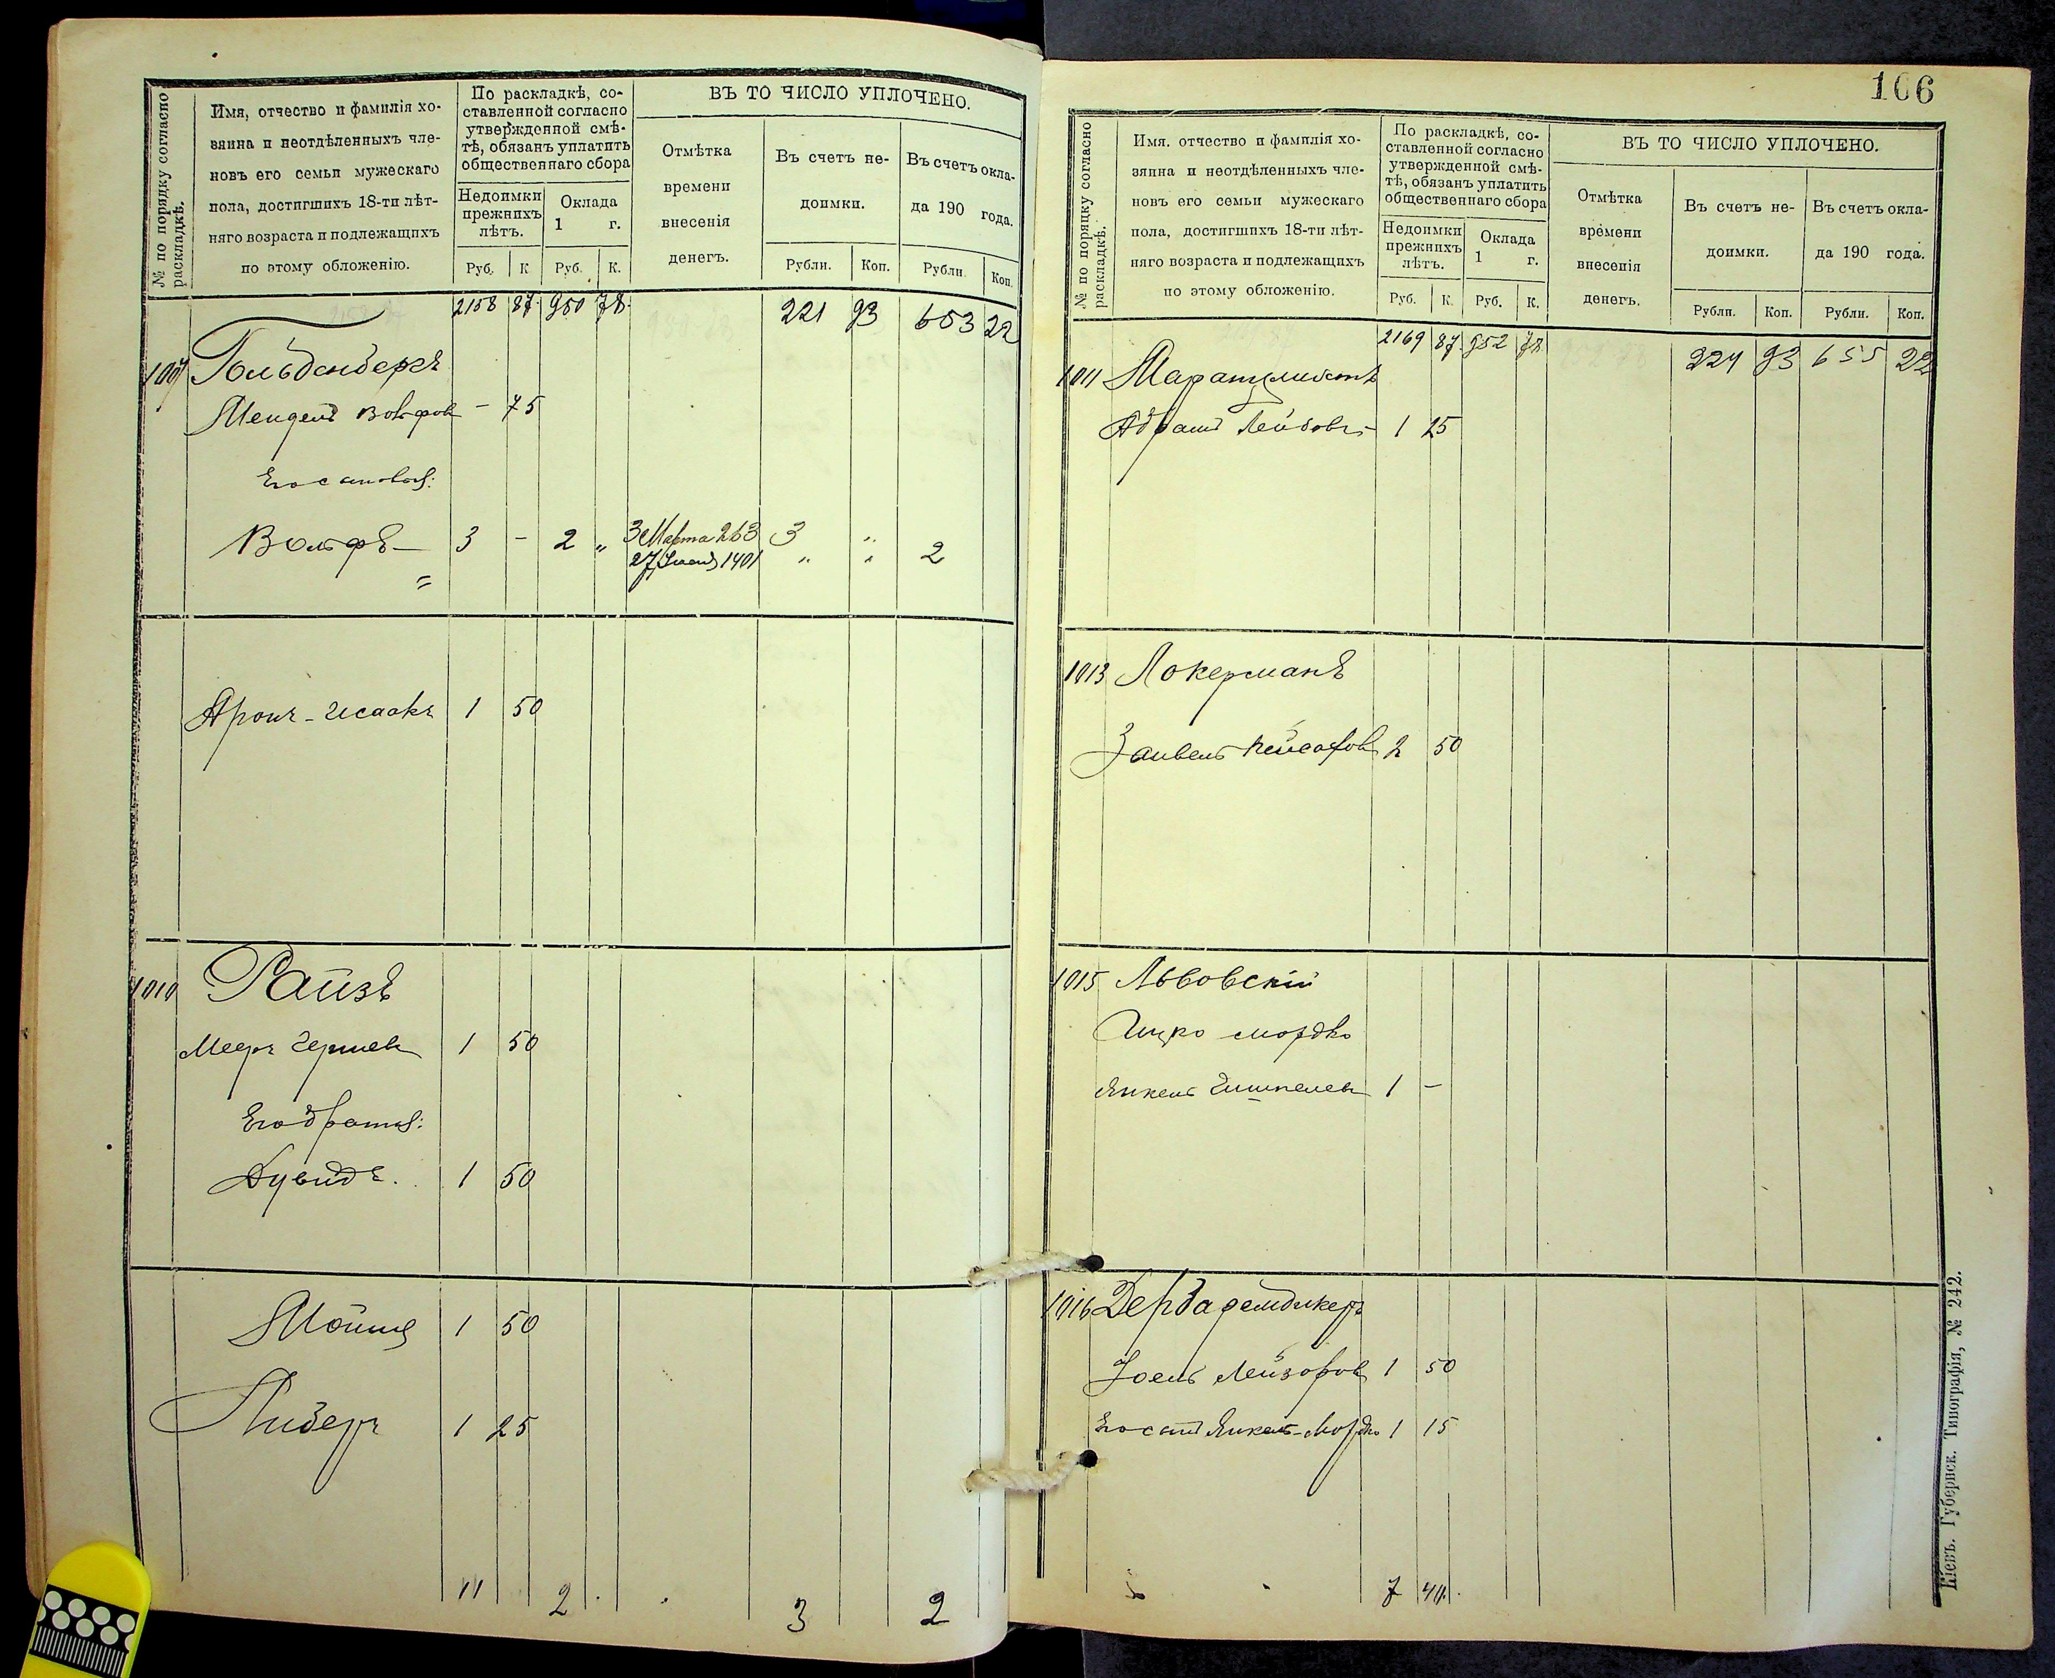 № по порядку согласно раскладкѣ.
Имя, отчество и фамилія хо-
зяина и неотдѣленныхъ чле-
новъ его семьи мужескаго
пола, достигшихъ 18-ти лѣт-
няго возраста и подлежащихъ
по этому обложенію.
По раскладкѣ, со-
ставленной согласно
утвержденной смѣ-
тѣ, обязанъ уплатить
общественнаго сбора
Недоимки
прежнихъ
лѣтъ.
Оклада
1 г.
Руб. К. Руб. К.
ВЪ ТО ЧИСЛО УПЛОЧЕНО.
Отмѣтка
времени
внесенія
денегъ.
Въ счетъ не-
доимки.
Въ счетъ окла-
да 190 года.
Рубли. Коп. Рубли. Коп.
2158 87 950 78 221 93 653 22
1007 Гольденбергъ
Мендель Вольфов - 75
Его сыновья:
Вольфъ 3 - 2 " 3 Марта 263 3 "
27 1401 " " 2
Аронъ-Исаакъ 1 50
1010 Райзъ
Мееръ Гершев 1 50
Его братья:
Дувидъ. 1 50
Мойше 1 50
Либеръ 1 25
11 2 3 2
106
№ по порядку согласно раскладкѣ.
Имя. отчество и фамилія хо-
зяина и неотдѣленныхъ чле-
новъ его семьи мужескаго
пола, достигшихъ 18-ти лѣт-
няго возраста и подлежащихъ
по этому обложенію.
По раскладкѣ, со-
ставленной согласно
утвержденной смѣ-
тѣ, обязанъ уплатить
общественнаго сбора
Недоимки
прежнихъ
лѣтъ.
Оклада
1 г.
Руб. К. Руб. К.
ВЪ ТО ЧИСЛО УПЛОЧЕНО.
Отмѣтка
времени
внесенія
денегъ.
Въ счетъ не-
доимки.
Въ счетъ окла-
да 190 года.
Рубли. Коп. Рубли. Коп.
2169 87 952 78 224 93 655 22
1011
Абрамъ Лейбовъ 1 25
1013 Локерманъ
Зайвель Пейсахов 2 50
1015 Львовскій
Ицко Мордко
Янкель 1 -
1016 Дербаремдикеръ
Іоель Лейзоров 1 50
Его сынъ Янкель-Мордко 1 15
7 40
Кіевъ. Губернск. Типографія, № 242.